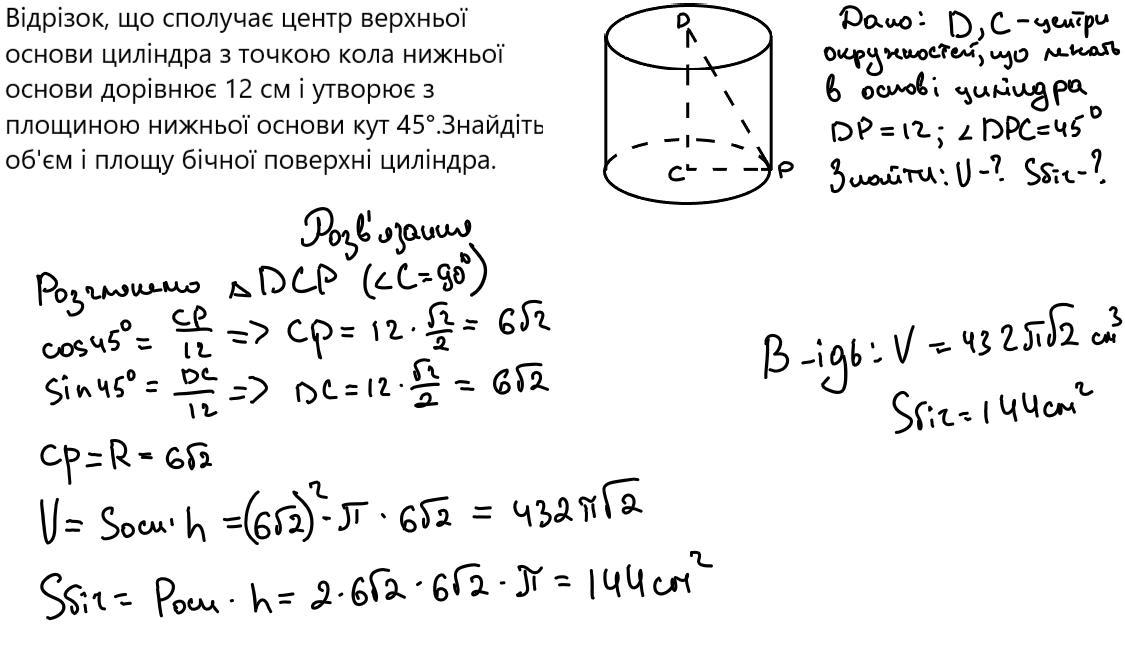 Відрізок, що сполучає центр верхньої
основи циліндра з точкою кола нижньої
основи дорівнює 12 см і утворює з
площиною нижньої основи кут 45°.Знайдіть
об'єм і площу бічної поверхні циліндра.
D
C
P
Дано: D, C - центри
окружностей, що лежать
в основі циліндра
DP = 12; ∠DPC = 45°
Знайти: V - ? Sбіч - ?
Розв'язання
Розглянемо △DCP (∠C = 90°)
cos45° = CP/12 => CP = 12 · √2/2 = 6√2
sin45° = DC/12 => DC = 12 · √2/2 = 6√2
CP = R = 6√2
V = Sосн · h = (6√2)² · π · 6√2 = 432π√2
Sбіч = Pосн · h = 2 · 6√2 · 6√2 · π = 144 см²
В-ідь: V = 432π√2 см³
Sбіч = 144 см²